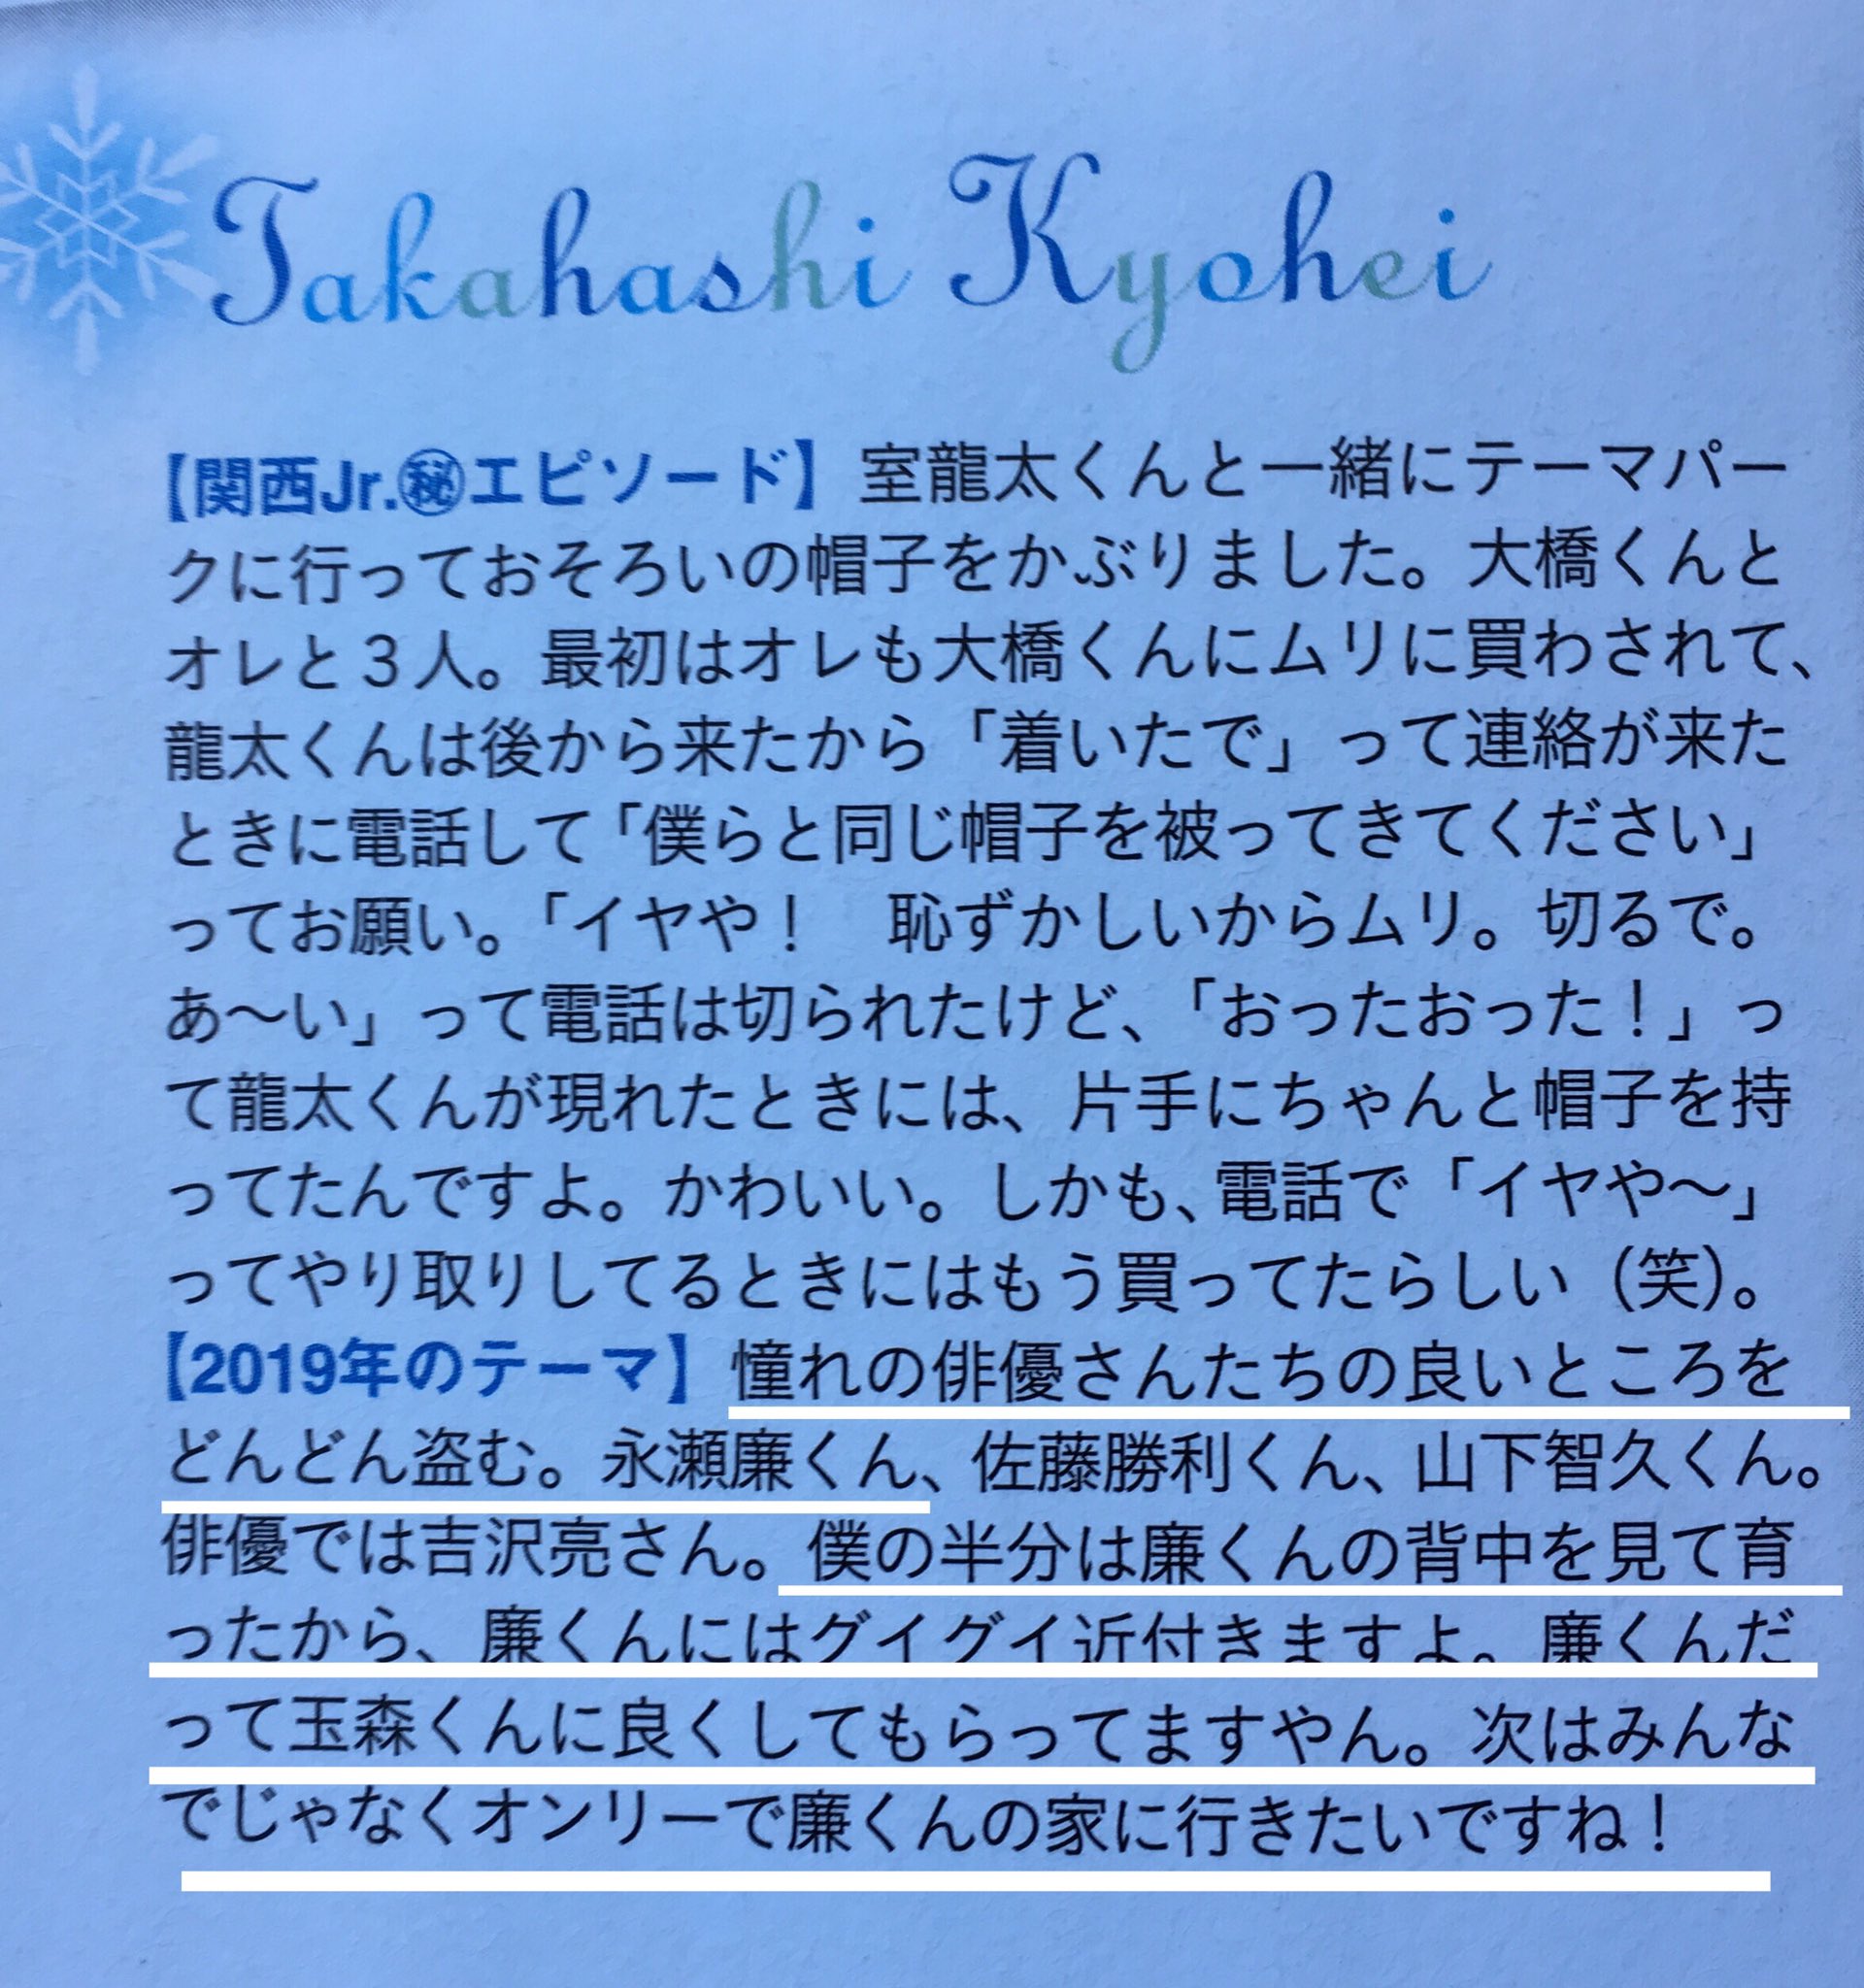 Takahashi Kyohei
【関西Jr.㊙エピソード】室龍太くんと一緒にテーマパー
クに行っておそろいの帽子をかぶりました。大橋くんと
オレと3人。最初はオレも大橋くんにムリに買わされて、
龍太くんは後から来たから「着いたで」って連絡が来た
ときに電話して「僕らと同じ帽子を被ってきてください」
ってお願い。「イヤや！　恥ずかしいからムリ。切るで。
あ〜い」って電話は切られたけど、「おったおった！」っ
て龍太くんが現れたときには、片手にちゃんと帽子を持
ってたんですよ。かわいい。しかも、電話で「イヤや〜」
ってやり取りしてるときにはもう買ってたらしい（笑）。
【2019年のテーマ】憧れの俳優さんたちの良いところを
どんどん盗む。永瀬廉くん、佐藤勝利くん、山下智久くん。
俳優では吉沢亮さん。僕の半分は廉くんの背中を見て育
ったから、廉くんにはグイグイ近付きますよ。廉くんだ
って玉森くんに良くしてもらってますやん。次はみんな
でじゃなくオンリーで廉くんの家に行きたいですね！